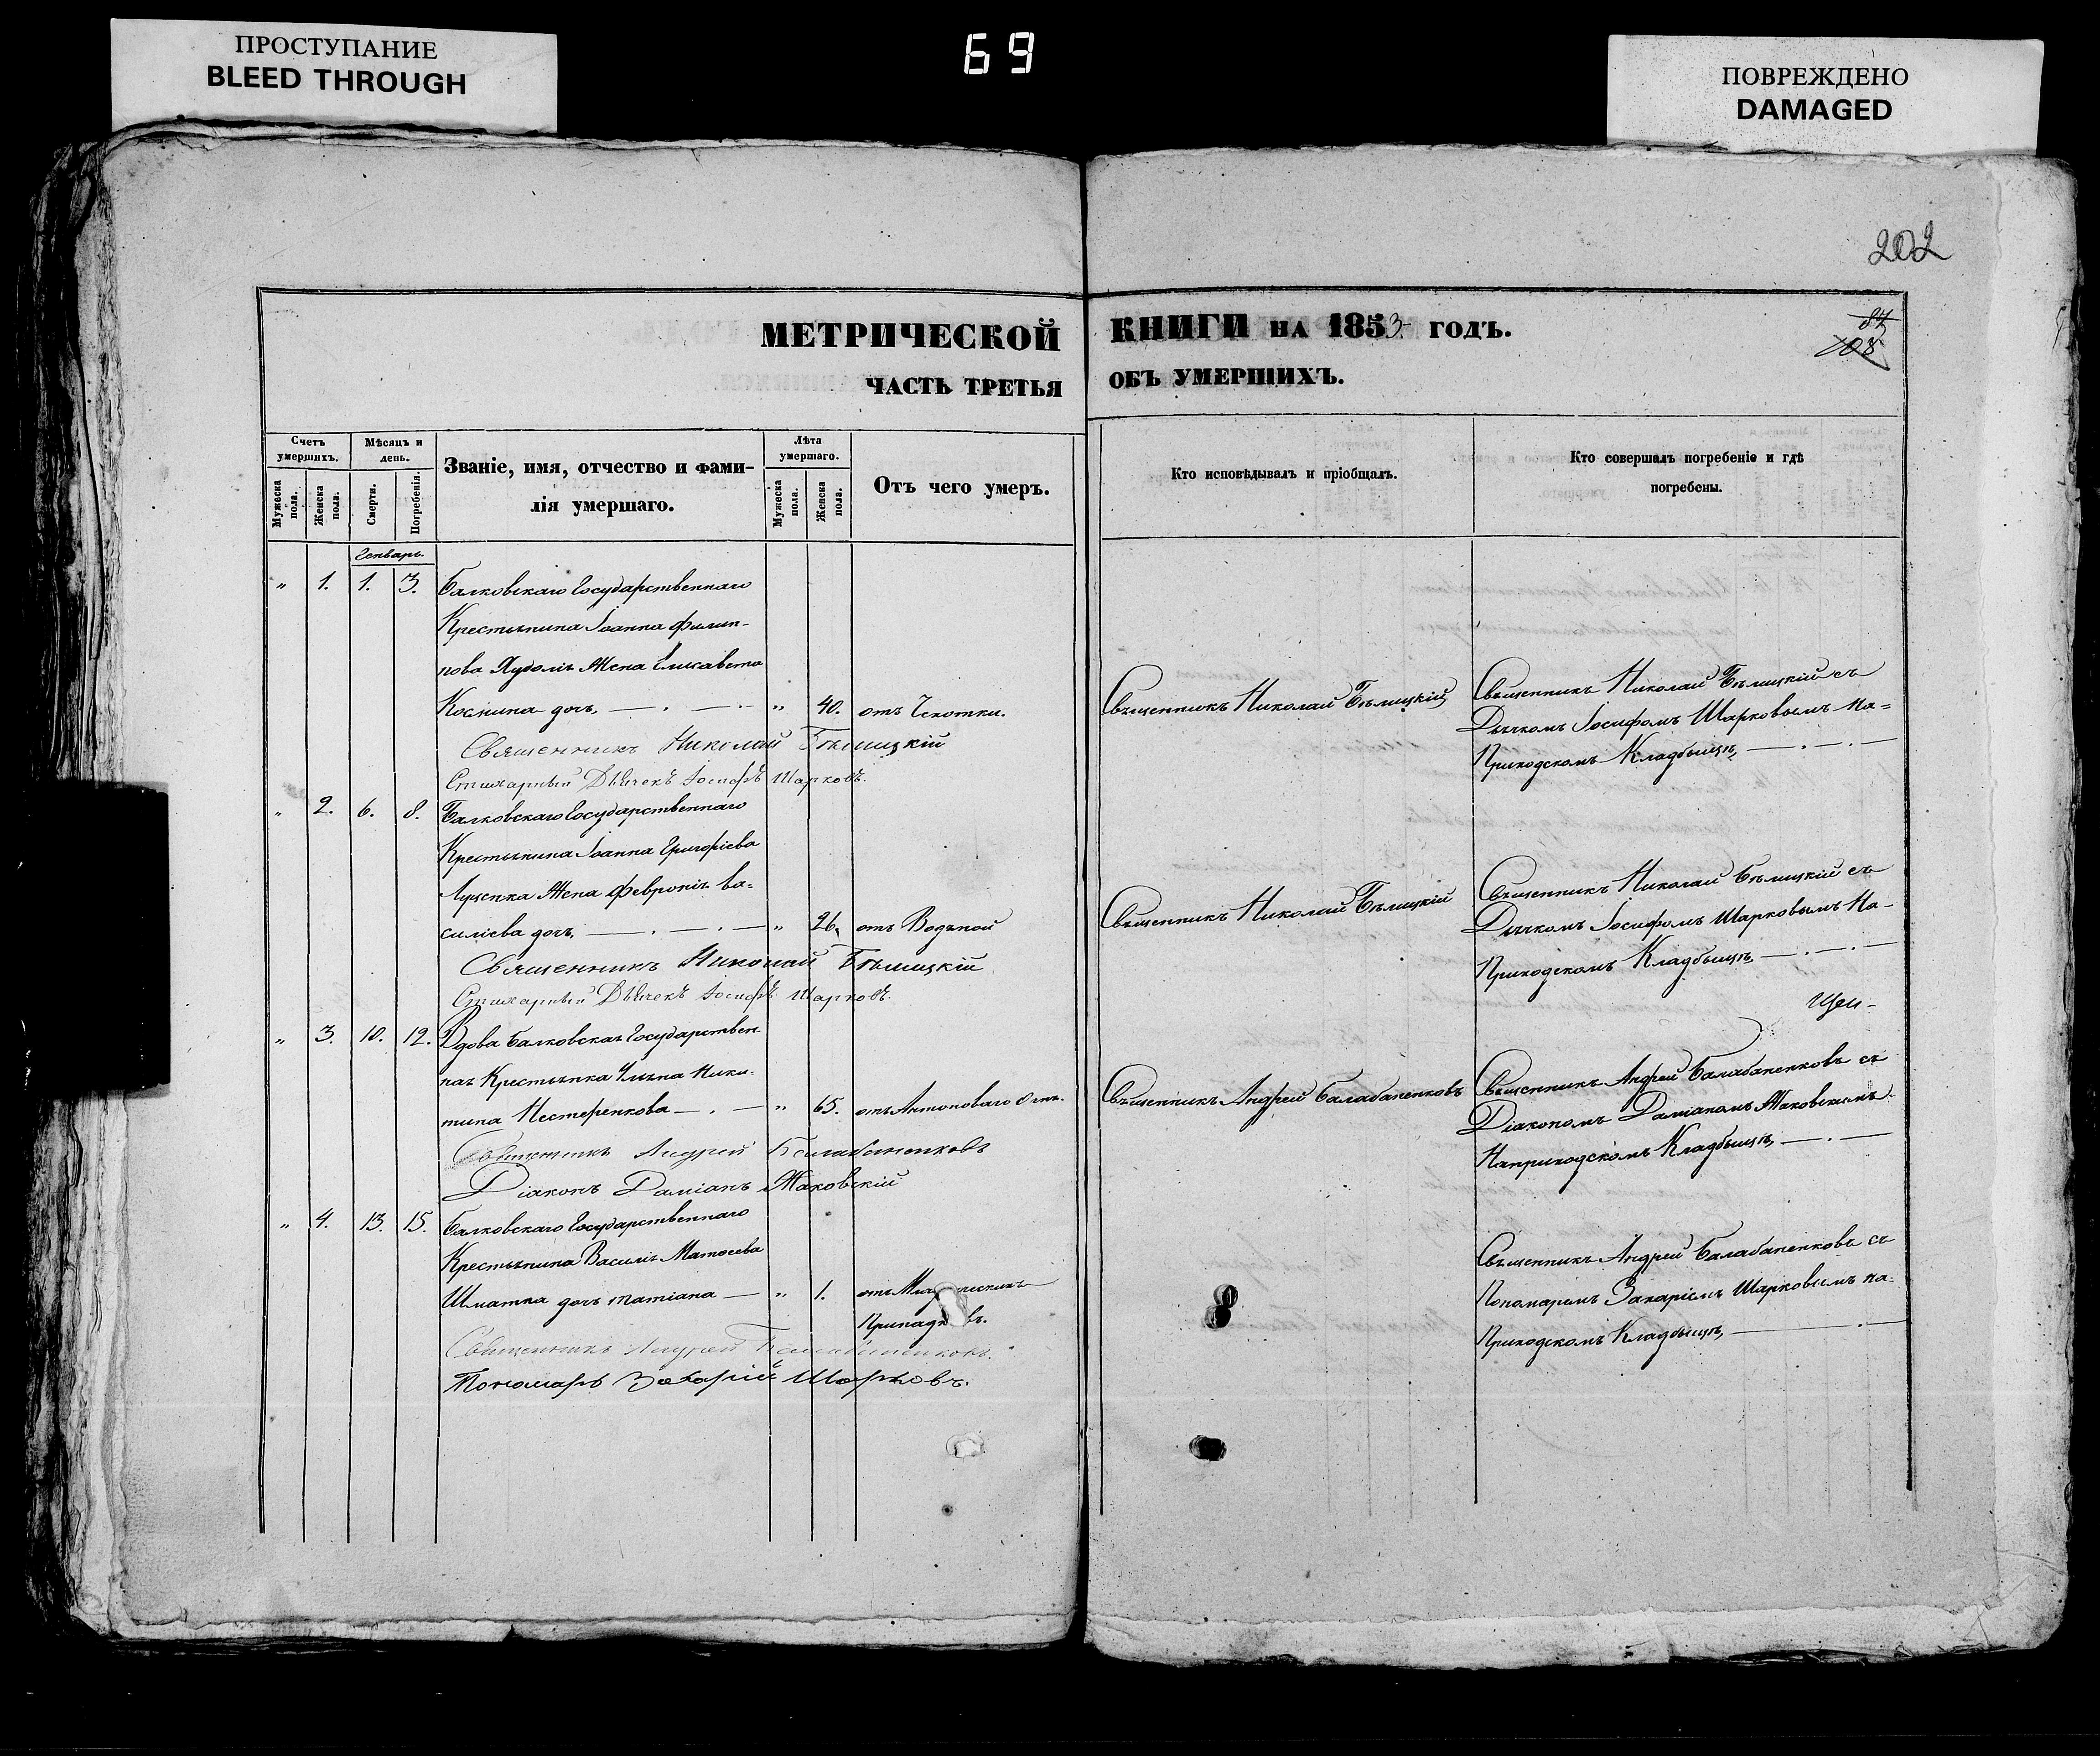 ПРОСТУПАНИЕ
BLEED THROUGH
69
ПОВРЕЖДЕНО
DAMAGED
202
МЕТРИЧЕСКОЙ КНИГИ НА 1853 ГОДЪ.
87
108
ЧАСТЬ ТРЕТЬЯ ОБЪ УМЕРШИХЪ.
Счетъ умершихъ.
Мужеска пола.
Женска пола.
Мѣсяцъ и день.
Смерти.
Погребенія.
Званіе, имя, отчество и фами-
лія умершаго.
Лѣта умершаго.
Мужеска пола.
Женска пола.
Отъ чего умеръ.
Кто исповѣдывалъ и пріобщалъ.
Кто совершалъ погребеніе и гдѣ
погребены.
Генварь.
„ 1. 1. 3. Балковскаго Государственнаго
Крестьянина Іоанна Филип-
пова Худолія Жена Елисавета
Космина дочь, „ 40. отъ Чехотки.
Священникъ Николай Бѣлицкій
Священникъ Николай Бѣлицкій съ
Дьячкомъ Іосифомъ Шарковымъ на-
Приходскомъ Кладбищѣ,
Священникъ Николай Бѣлицкій
Стихарный Дьячекъ Іосифъ Шарковъ.
„ 2. 6. 8. Балковскаго Государственнаго
Крестьянина Іоанна Григоріева
Луценка Жена Февронія Ва-
силіева дочь, „ 26, отъ Водяной
Священникъ Николай Бѣлицкій
Священникъ Николай Бѣлицкій съ
Дьячкомъ Іосифомъ Шарковымъ На-
Приходскомъ Кладбищѣ,
Священникъ Николай Бѣлицкій
Стихарный Дьячекъ Іосифъ Шарковъ.
„ 3. 10. 12. Вдова Балковская Государствен-
ная Крестьянка Ульяна Ники-
тина Нестеренкова „ 65. отъ Антоноваго Огня.
Священникъ Андрей Балабаненковъ
Священникъ Андрей Балабаненковъ съ
Діакономъ Даміаномъ Маковскимъ
Наприходскомъ Кладбищѣ,
Священникъ Андрей Балабаненковъ
Діаконъ Даміанъ Маковскій
„ 4. 13. 15. Балковскаго Государственнаго
Крестьянина Василія Матѳеева
Шматка дочь Татіана „ 1.
Священникъ Андрей Балабаненковъ съ
Пономаремъ Захаріемъ Шарковымъ на-
Приходскомъ Кладбищѣ,
Священникъ Андрей Балабаненковъ.
Пономарь Захарій Шарковъ.